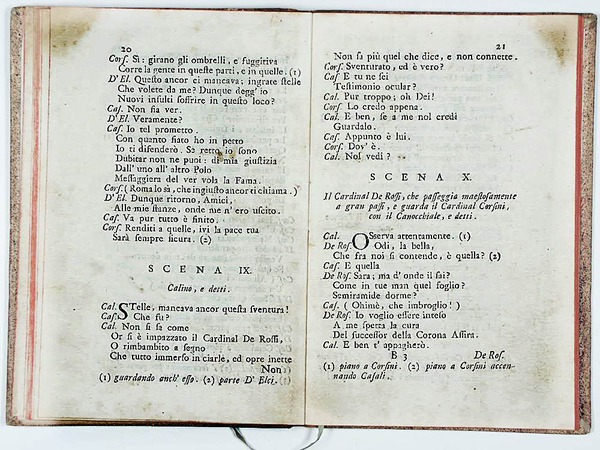 20
Corſ. Sì: girano gli ombrelli, e fuggitiva
Corre la gente in queſte parti, e in quelle. (1)
D' El. Queſto ancor ci mancava; ingrate ſtelle
Che volete da me? Dunque degg' io
Nuovi inſulti ſoffrire in queſto loco?
Caſ. Non ſia ver.
D' El. Veramente?
Caſ. Io tel prometto.
Con quanto fiato ho in petto
Io ti difenderò. Sa retto io ſono
Dubitar non ne puoi: di mia giuſtizia
Dall' uno all' altro Polo
Meſſaggiera del ver vola la Fama.
Corſ. (Roma lo sà, che ingiuſto ancor ti chiama.)
D' El. Dunque ritorno, Amici,
Alle mie ſtanze, onde me n' ero uſcito.
Caſ. Va pur tutto è finito.
Corſ. Renditi a quelle, ivi la pace tua
Sarà ſempre ſicura. (2)
SCENA IX.
Calino, e detti.
Cal. STelle, mancava ancor queſta ſventura!
Caſ. Che fu?
Cal. Non ſi ſa come
Or ſi è impazzato il Cardinal De Roſſi,
O rimbambito a ſegno
Che tutto immerſo in ciarle, ed opre inette
Non
(1) guardando anch' eſſo. (2) parte D' Elci.
21
Non ſa più quel che dice, e non connette.
Corſ. Sventurato, ed è vero?
Caſ. E tu ne ſei
Teſtimonio ocular?
Cal. Pur troppo; oh Dei!
Corſ. Lo credo appena.
Cal. E ben, ſe a me nol credi
Guardalo.
Caſ. Appunto è lui.
Corſ. Dov' è.
Cal. Nol vedi?
SCENA X.
Il Cardinal De Roſſi, che paſſeggia maeſtoſamente
a gran paſſi, e guarda il Cardinal Corſini,
con il Canocchiale, e detti.
Cal. OSſerva attentamente. (1)
De Roſ. Odi, la bella,
Che fra noi ſi contende, è quella? (2)
Caſ. E quella
De Roſ. Sara; ma d' onde il ſai?
Come in tue man quel foglio?
Semiramide dorme?
Caſ. (Ohimè, che imbroglio!)
De Roſ. Io voglio eſſere inteſo
A me ſpetta la cura
Del ſucceſſor della Corona Aſſira.
Cal. E ben t' appagherò.
B 3
De Roſ.
(1) piano a Corſini. (2) piano a Corſini accen-
nando Caſali.